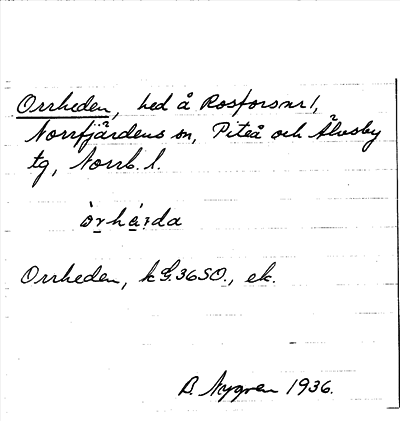 Orrheden, hed å Rosforsnr 1,
Norrfjärdens sn, Piteå och Älvsby
tg, Norrb. l.
òrhá:da
Orrheden, k G.36SO., ek.
B. Nygren 1936.